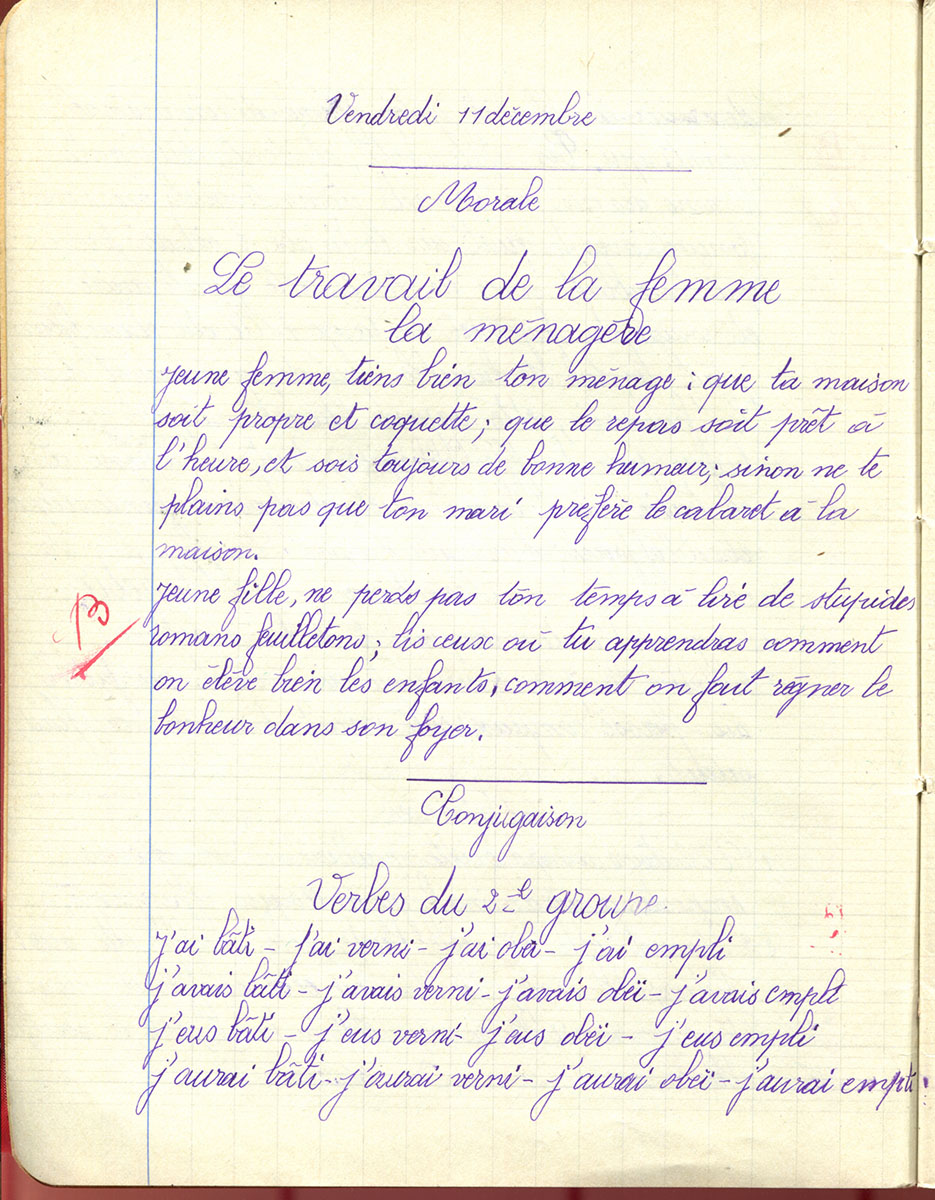 Vendredi 11 décembre
Morale
Le travail de la femme
la ménagère
Jeune femme, tiens bien ton ménage : que ta maison
soit propre et coquette ; que le repas soit prêt à
l'heure, et sois toujours de bonne humeur ; sinon ne te
plains pas que ton mari préfère le cabaret à la
maison.
Jeune fille, ne perds pas ton temps à lire de stupides
romans feuilletons ; lis ceux où tu apprendras comment
on élève bien les enfants, comment on fait régner le
bonheur dans son foyer.
B
Conjugaison
Verbes du 2e groupe.
J'ai bâti - j'ai verni - j'ai obéi - j'ai empli
j'avais bâti - j'avais verni - j'avais obéï - j'avais empli
j'eus bâti - j'eus verni - j'eus obéï - j'eus empli
j'aurai bâti - j'aurai verni - j'aurai obéï - j'aurai empli.